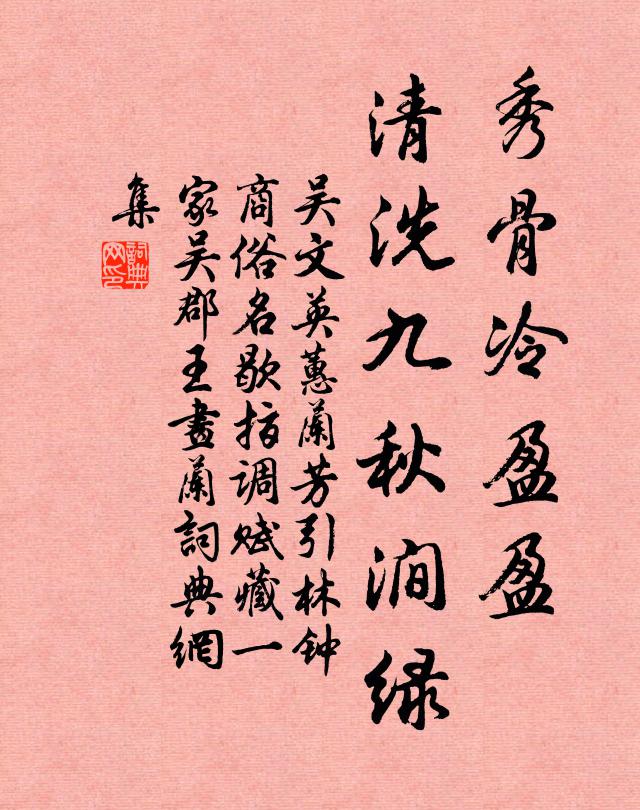 秀骨冷盈盈
清洗九秋涧绿
吴文英蕙蘭芳引林钟
商俗名歇指调赋藏一
家吴郡王畫蘭詞典網
集
詞典網印